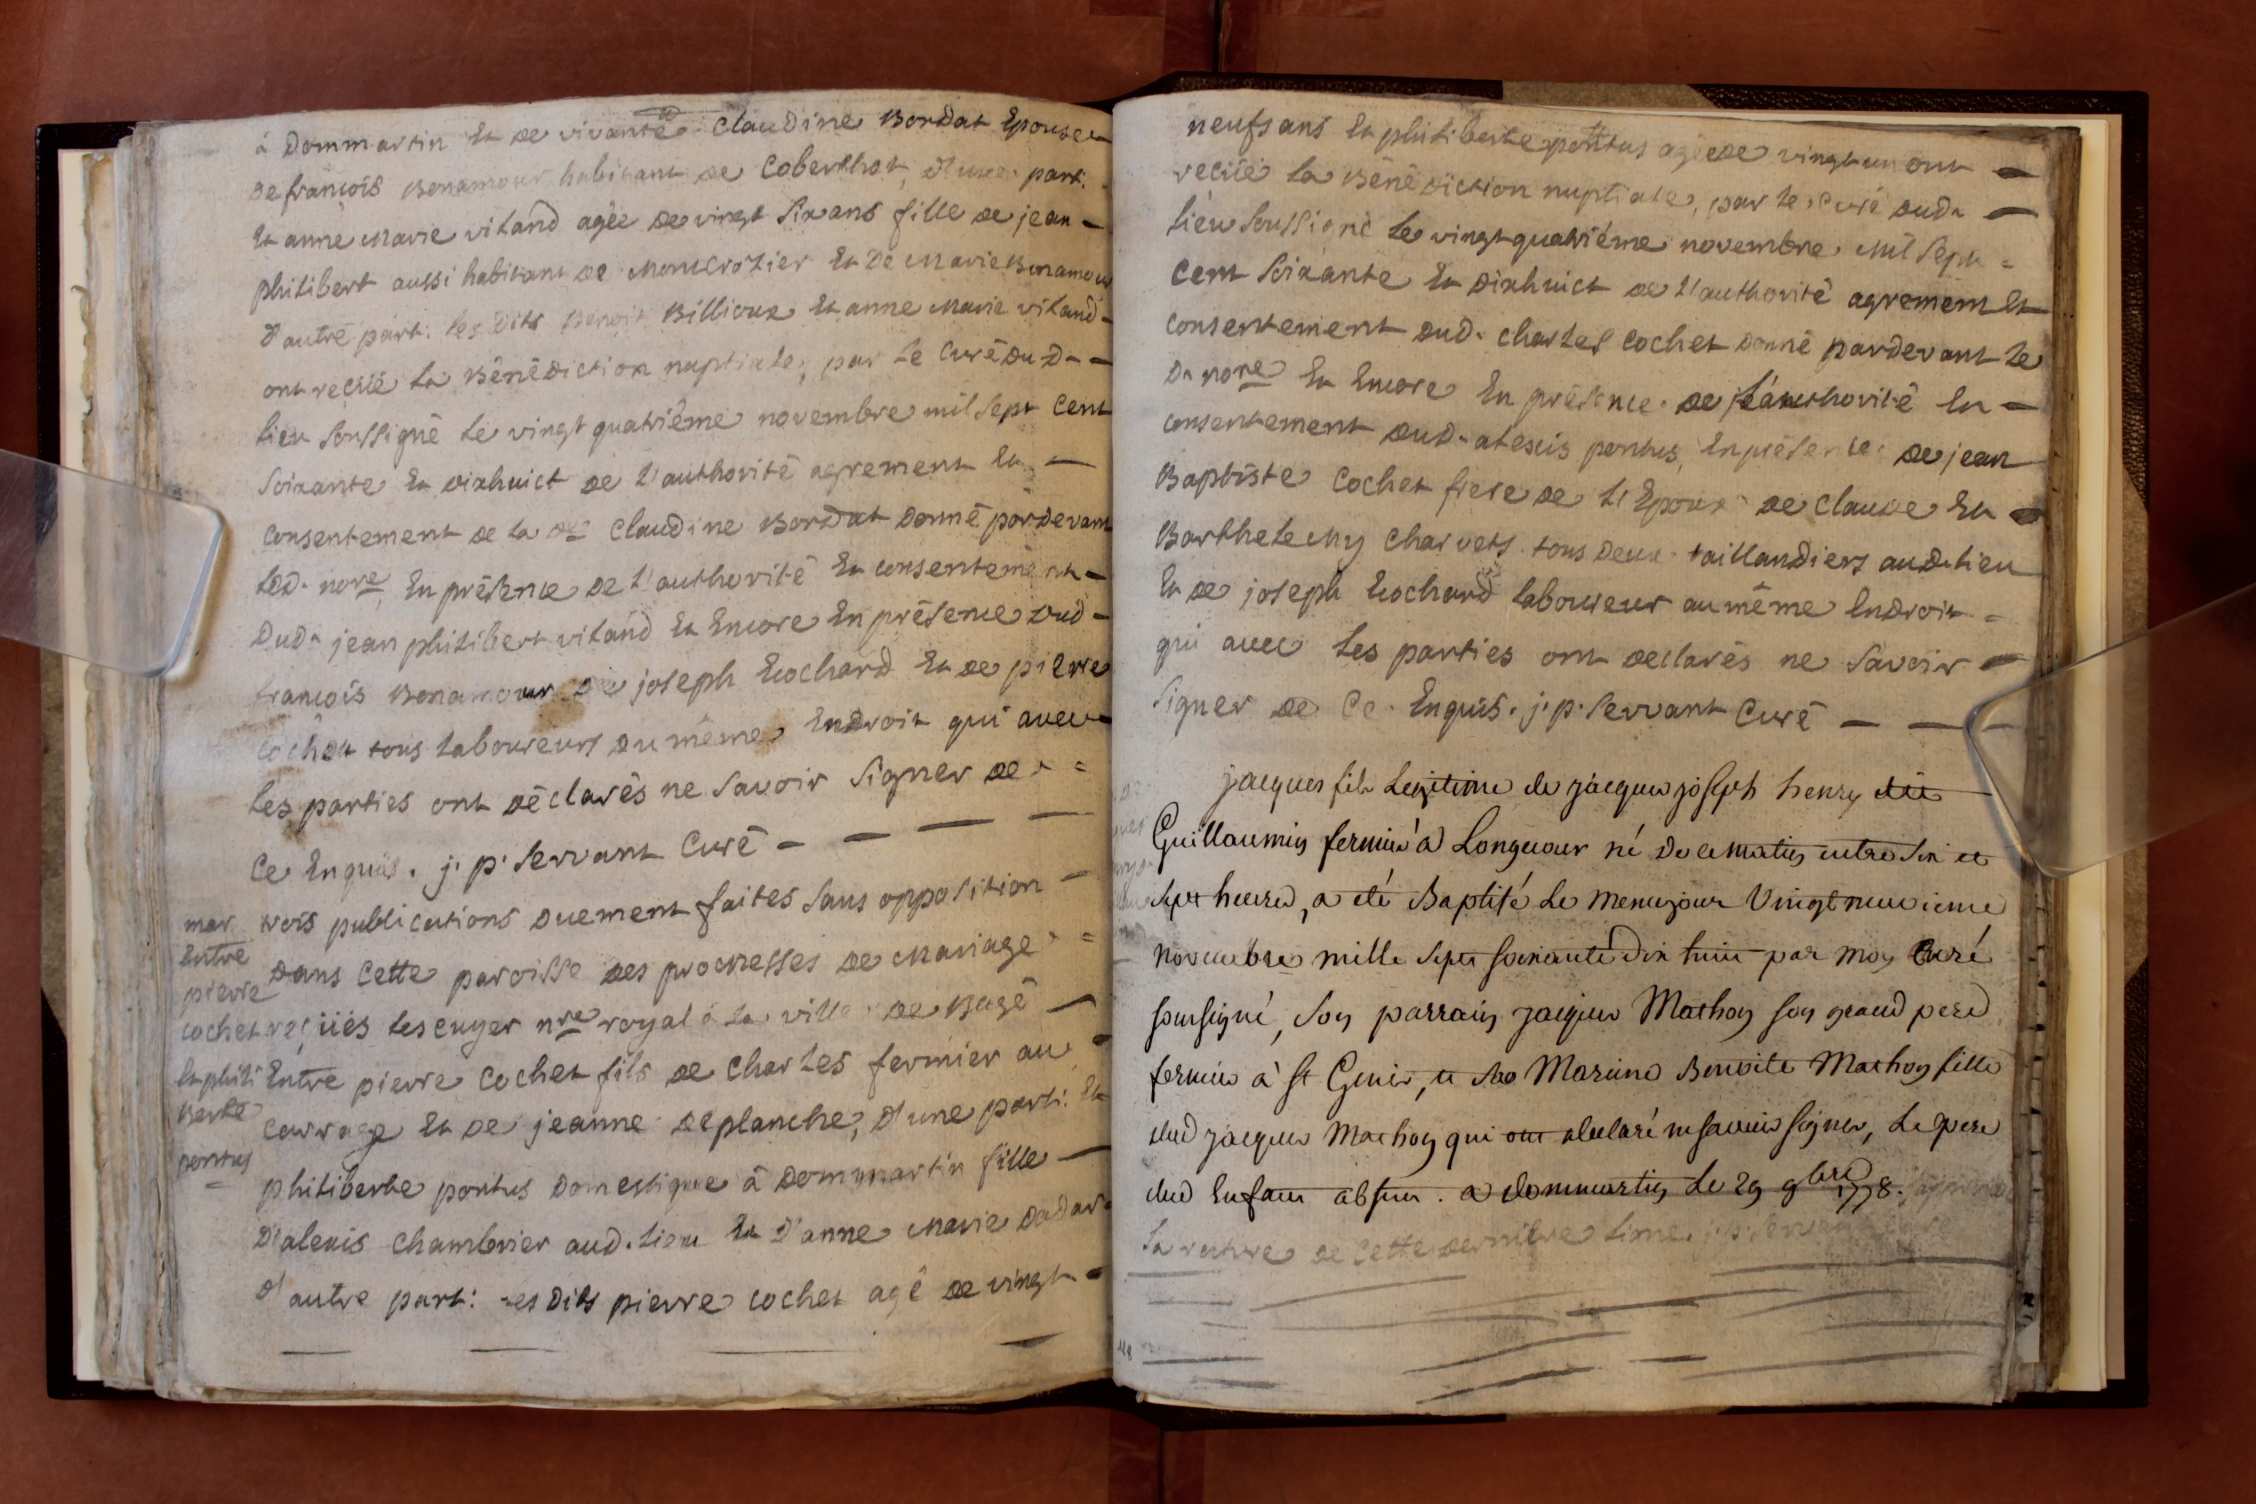 à Dommartin Et de vivante Claudine Bordat Epouse
de francois Bonamour habitant de Coberthot, d'une part.
Et anne Marie vitand agée de vingt Six ans fille de jean
philibert aussi habitant de Montcrozier Et De Marie Bonamour
d'autre part: les Dits Benoit Billioux Et anne Marie vitand
ont recüe la Bénédiction nuptiale, par le Curé Du D.
lieu Soussigné le vingt quatriéme novembre mil Sept Cent
Soixante Et dixhuict de l'authorité agrement Et
Consentement de la de Claudine Bordat Donné pardevant
led. nore, En présence de l'authorité Et consentement
Dud. jean philibert vitand Et Encore En présence dud
francois Bonamour De joseph Eochard Et de pierre
Cochet tous laboureurs du même Endroit qui avec
les parties ont déclarés ne Savoir Signer de
Ce Enquis. j. p. Servant Curé
trois publications duement faites Sans opposition
Dans Cette paroisse des promesses de Mariage
reçüés lescuyer nre royal à la ville de Bagé
Entre pierre Cochet fils de Charles fermier au
Et de jeanne deplanche, d'une part: Et
philiberte pontus Domestique à Dommartin fille
D'alexis Chambrier aud. lieu Et D'anne Marie
d'autre part: les Dits pierre Cochet agé de vingt
mar
Entre
pierre
cochet
Et phili
berte
pontus
neufs ans Et philiberte pontus agée de vingt un ont
recüe la Bénédiction nuptiale, par le Curé dud.
lieu Soussigné le vingt quatriéme novembre mil Sept
Cent Soixante Et Dixhuict de l'authorité agrement Et
Consentement dud. charles Cochet Donné pardevant le
D. nore Et Encore En présence de l'authorité Et
consentement dud. alexis pontus, En présence de jean
Baptiste Cochet frere de l'Epoux de Claude Et
Barthelemy Charvets tous deux taillandiers aud. lieu
Et de joseph Eochard laboureur au même Endroit
qui avec les parties ont declarés ne Savoir
Signer de Ce Enquis. j. p. Servant Curé
jacques fils Legitime de jacques joseph henry dit
Guillaumin fermier à Longuour né de ce matin entre Six et
Sept heures, a été Baptisé le meme jour Vingtneuvieme
Novembre mille Sept Soixante dix huit par moy Curé
soussigné, Son parrain jacques Mathoy son grand pere
fermier à St Genis, et sa Marine Benoite Mathoy fille
dud jacques Mathoy qui ont declaré ne savoir signer, Le pere
dud Enfant absent. a dommartin le 29 9bre 1778. j'approuve
La rature de Cette derniere ligne. j. p. Servant Curé